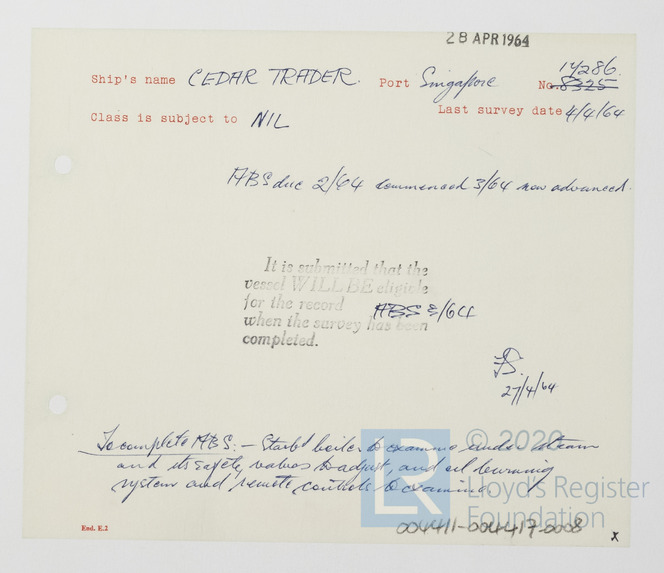 28 APR 1964
Ship's name CEDAR TRADER. Port Singapore No. 8325 14286.
Class is subject to NIL Last survey date 4/4/64
ABS due 2/64 commenced 3/64 now advanced.
It is submitted that the
vessel WILL BE eligible
for the record ABS 3/64
when the survey has been
completed.
27/4/64
To complete ABS: - Starbd boiler to examine under steam
and its safety valves to adjust, and oil burning
system and remote controls to examine.
© 2020
LR
Lloyd's Register
Foundation
004411-004417-0008
End. E.2
x